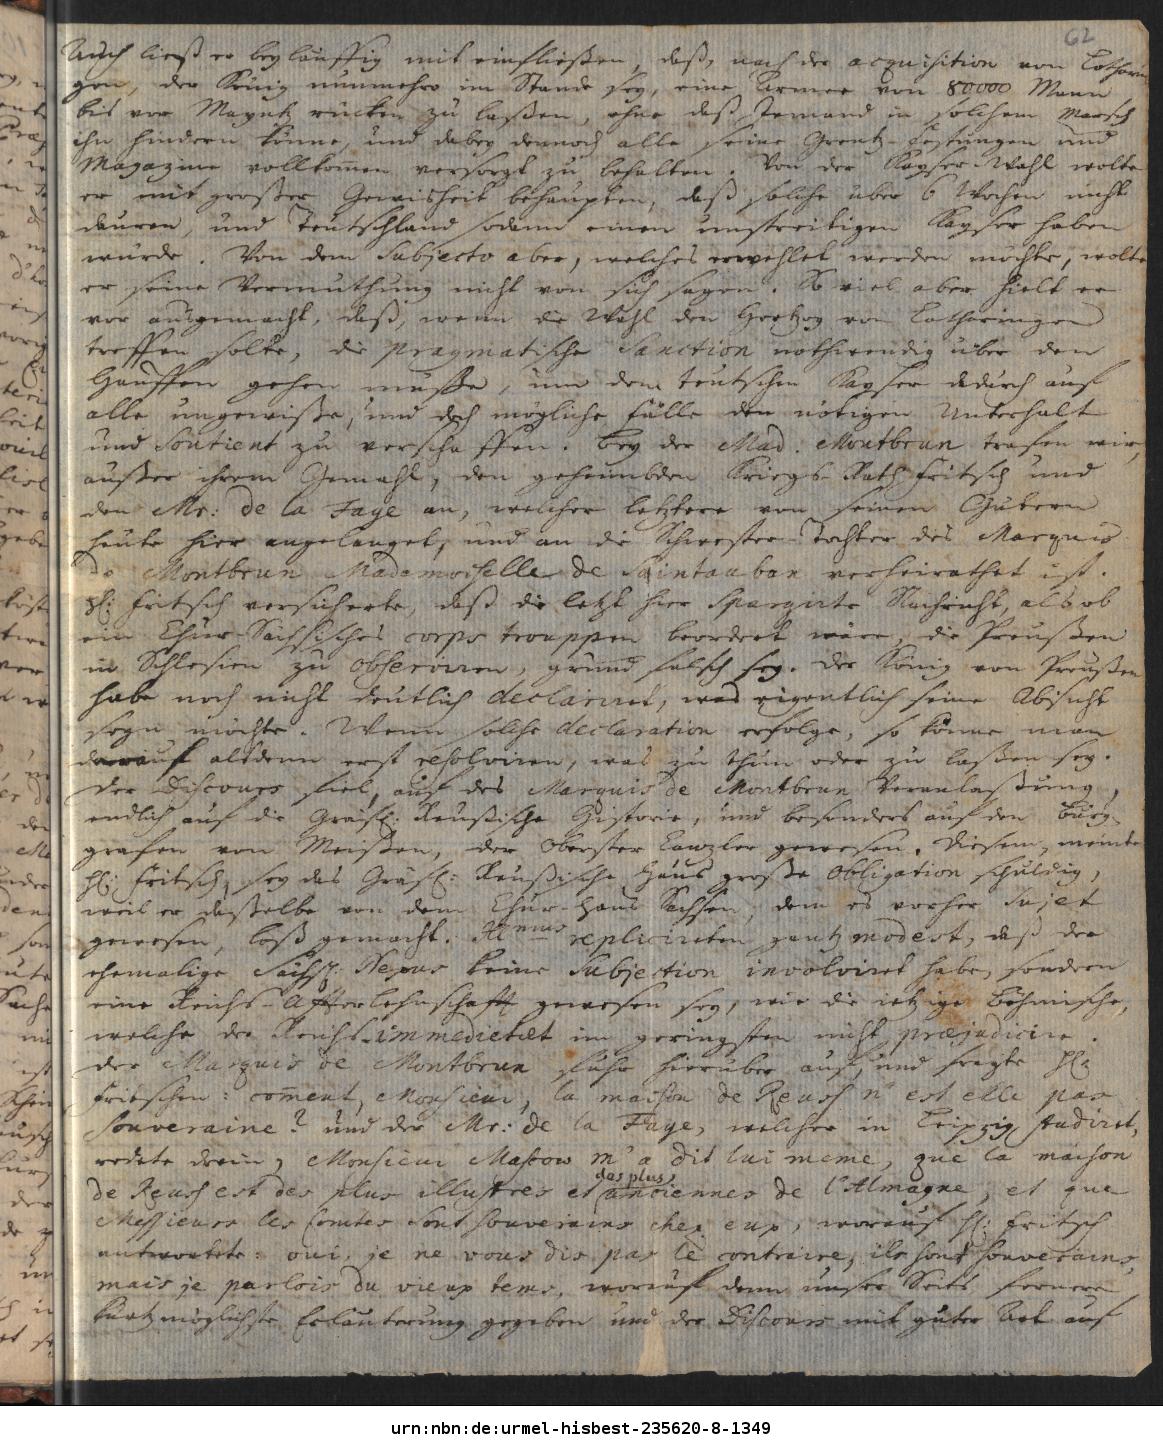 62
Auch ließ er beyläuffig mit einfließen, daß, nach der acquisition von Lotharin
gen, der König nunmehro im Stande sey, eine Armee von 80000 Mann
bis vor Mayntz rücken zu laßen, ohne daß Jemand in solchem Marsch
ihn hindern könne, und dabey dennoch alle seine Grentz-Festungen und
Magazine vollkom̅en versorgt zu behalten. Von der Kayser-Wahl wolte
er mit großer Gewisheit behaupten, daß solche über 6 Wochen nicht
dauren, und Teutschland sodann einen unstreitigen Kayser haben
würde. Von dem Subjecto aber, welches erwehlet werden möchte, wolte
er seine Vermuthung nicht von sich sagen. So viel aber hielt er
vor ausgemacht, daß, wenn die Wahl den Hertzog von Lotharingen
treffen solte, die pragmatische Sanction nothwendig über den
Hauffen gehen müste, um dem teutschen Kayser dadurch auf
alle ungewiße, und doch mögliche Fälle den nötigen Unterhalt
und Soutient zu verschaffen. Bey der Mad. Montbrun trafen wir,
außer ihrem Gemahl, den geheimbden Kriegs-Rath Fritsch und
den Mr: de la Faye an, welcher letztere von seinen Gütern
heute hier angelanget, und an die Schwester-Tochter des Marquis
de Montbrun Mademoiselle de Saintauban verheirathet ist.
H: Fritsch versicherte, daß die letzt hier spargirte Nachricht, als ob
ein Chur-Sächsisches corps trouppen beordert wäre, die Preußen
in Schlesien zu observiren, grund falsch sey. Der König von Preußen
habe noch nicht deutlich declariret, was eigentlich seine Absicht
seyn möchte. Wenn solche declaration erfolge, so könne man
darauf alsdenn erst resolviren, was zu thun oder zu laßen sey.
Der Discours fiel, auf des Marquis de Montbrun Veranlaßung,
endlich auf die Gräfl: Reußische Historie, und besonders auf den Burg-
grafen von Meißen, der Oberster Canzler gewesen. Diesem, meinte
H: Fritsch, sey das Gräfl: Reußische Haus große Obligation schuldig,
weil er daßelbe von dem Chur-Haus Sachsen, dem es vorher Sujet
gewesen, loß gemacht. Ill^mus replicirten gantz modest, daß der
ehemalige Sächs: Nexus keine Subjection involviret habe, sondern
eine Reichs-Affterlehnschafft gewesen sey, wie die ietzige Böhmische,
welche der Reichs-immedietæt im geringsten nicht præjudicire.
Der Marquis de Montbrun fuhr hierüber auf, und fragte H:
Fritschen: com̅ent, Monsieur, la maison de Reuss n'est elle pas
Souveraine? und der Mr: de la Faye, welcher in Leipzig studiret,
redete drein, Monsieur Mascow m'a dit lui meme, que la maison
de Reuss est des plus illustres et des plus anciennes de l'Almagne, et que
Messieurs les Comtes sont souverains chez eux, worauf H: Fritsch
antwortete: oui, je ne vous dis pas le contraire, ils sont souverains,
mais je parlois du vieux tems, worauf denn unser Seits fernere
kurtzmöglichste Erläuterung gegeben und der Discours mit guter Art auf
urn:nbn:de:urmel-hisbest-235620-8-1349